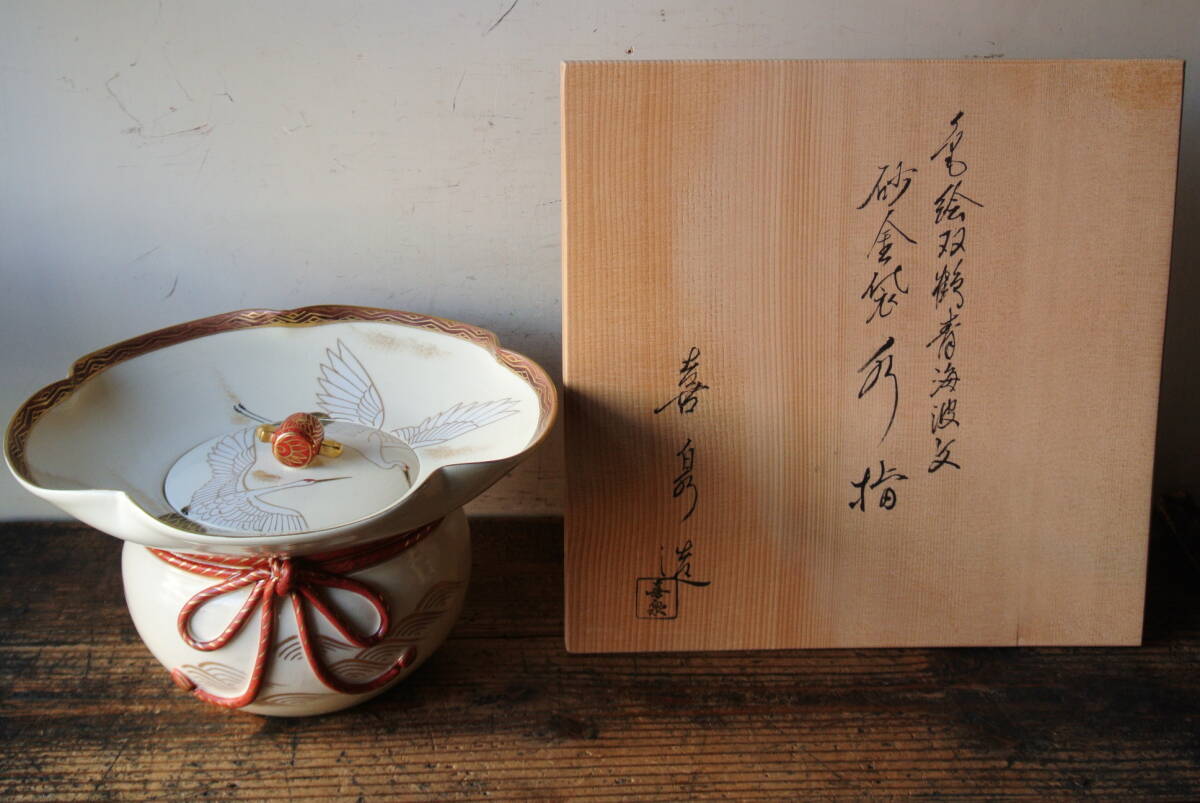 色絵双鶴青海波文
砂金袋水指
喜泉造
喜泉